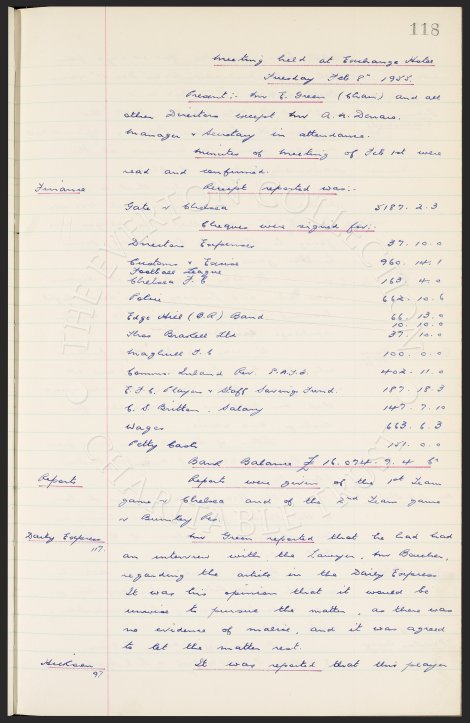 118
Meeting held at Exchange Hotel
Tuesday Feb 8th 1955.
Present:- Mr E. Green (Chair) and all
other Directors except Mr A. H. Denaro.
Manager & Secretary in attendance.
Minutes of Meeting of Feb 1st were
read and confirmed.
Finance Receipt reported was:-
Gate v Chelsea 5187. 2. 3
Cheques were signed for:-
Directors Expenses 37. 10. 0
Customs & Excise 960. 14. 1
Football League
Chelsea F. C 163. 4. 0
Police 662. 10. 6
Edge Hill (B.R) Band 66. 13. 0
10. 10. 0
Thos Braskell Ltd 37. 10. 0
Maghull F. C 100. 0. 0
Comms. Inland Rev. P.A.Y.E. 402. 11. 0
E. F. C. Players & Staff Savings Fund. 187. 18. 3
C. S. Britton. Salary 147. 7. 10
Wages 663. 6. 3
Petty Cash 151. 0. 0
Bank Balance £ 16,074. 9. 4
Reports Reports were given of the 1st Team
game v Chelsea and of the 2nd Team game
v Burnley Res
Daily Express Mr Green reported that he had had
117.
an interview with the Lawyer, Mr
regarding the article in the Daily Express
It was his opinion that it would be
unwise to pursue the matter, as there was
no evidence of malice, and it was agreed
to let the matter rest.
Hickson It was reported that this player
97
THE EVERTON COLLECTION
CHARITABLE TRUST